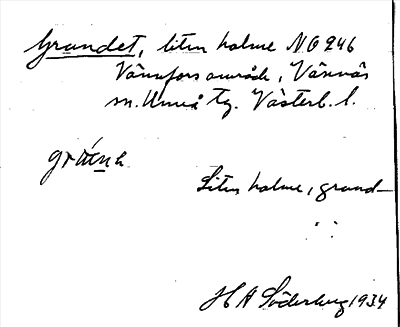 Grundet, liten holme NO 246
Vännfors område, Vännäs
sn. Umeå tg. Västerb. l.
Liten holme, grund
H A Söderberg 1934